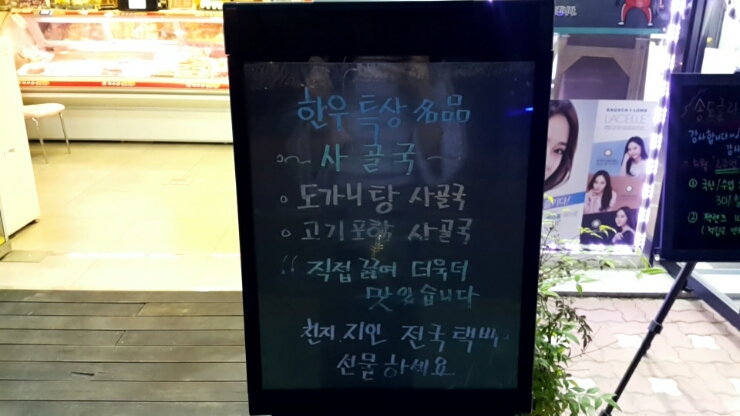 한우 특상 名品
~ 사골국 ~
○ 도가니탕 사골국
○ 고기포함 사골국
!! 직접 끓여 더욱더
맛있습니다
친지.지인 전국택배
선물하세요
LACELLE
송도글라
감사합니다
①
②